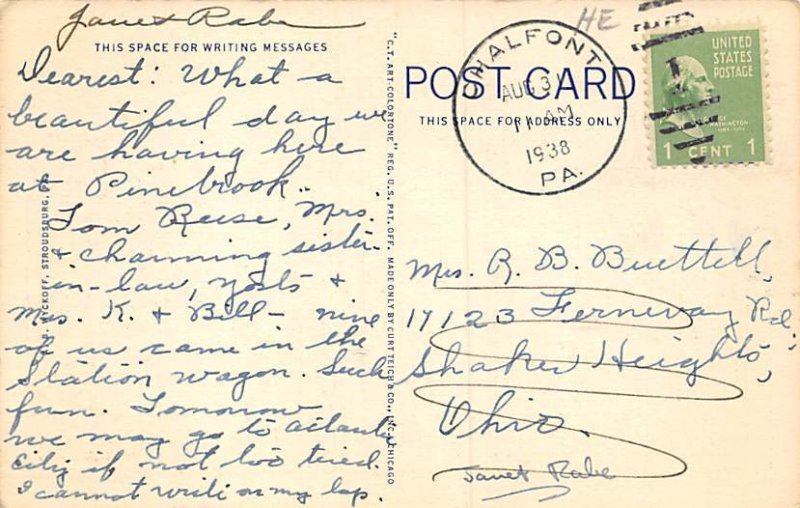 Janet Rabe
THIS SPACE FOR WRITING MESSAGES
Dearest: What a
beautiful day we
are having here
at Pinebrook.
Tom Reese, Mrs.
& charming sister-
in-law, Yosts &
Mrs. K. & Bill - nine
of us came in the
Station wagon. Such
fun. Tomorrow
we may go to Atlantic
City if not too tired.
I cannot write on my lap.
STROUDSBURG, PA.
"C.T. ART-COLORTONE" REG. U.S. PAT. OFF. MADE ONLY BY CURT TEICH & CO., INC., CHICAGO
HE
POST CARD
THIS SPACE FOR ADDRESS ONLY
CHALFONT
AUG 31
11 AM
1938
PA.
UNITED
STATES
POSTAGE
WASHINGTON
1 CENT 1
Mrs. R. B. Buettell,
17123 Fernway Rd.,
Shaker Heights,
Ohio.
Janet Rabe